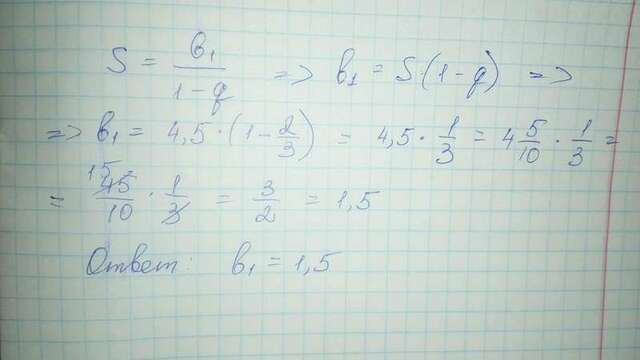 S = b₁/(1-q) => b₁ = S·(1-q) =>
=> b₁ = 4,5·(1-2/3) = 4,5·1/3 = 4 5/10·1/3 =
= 15 45/10·1/3 = 3/2 = 1,5
Ответ: b₁ = 1,5